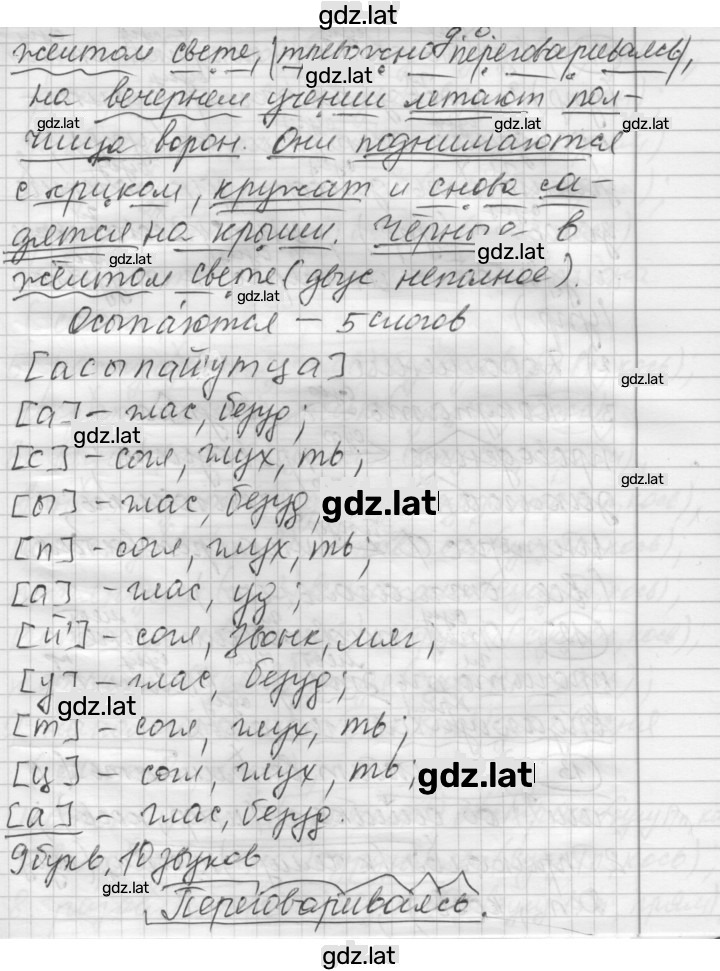 gdz.lat
д.о.
жёлтом свете, |тревожно переговариваясь|,
gdz.lat
на вечернем учении летают пол-
gdz.lat gdz.lat gdz.lat
чища ворон. Они поднимаются
с криком, кружат и снова са-
дятся на крыши. Чёрные в
gdz.lat gdz.lat
жёлтом свете (двус неполное).
gdz.lat
Осыпаются – 5 слогов
[асыпай'утца]
gdz.lat
[а] – глас, безуд;
gdz.lat
[с] – согл, глух, тв;
gdz.lat
[ы] – глас, безуд,
gdz.lat
[п] – согл, глух, тв;
[а] – глас, уд;
[й'] – согл, звонк, мяг;
[у] – глас, безуд;
gdz.lat
[т] – согл, глух, тв;
[ц] – согл, глух, тв;
gdz.lat
[а] – глас, безуд.
9 букв, 10 звуков
gdz.lat
Переговариваясь.
gdz.lat